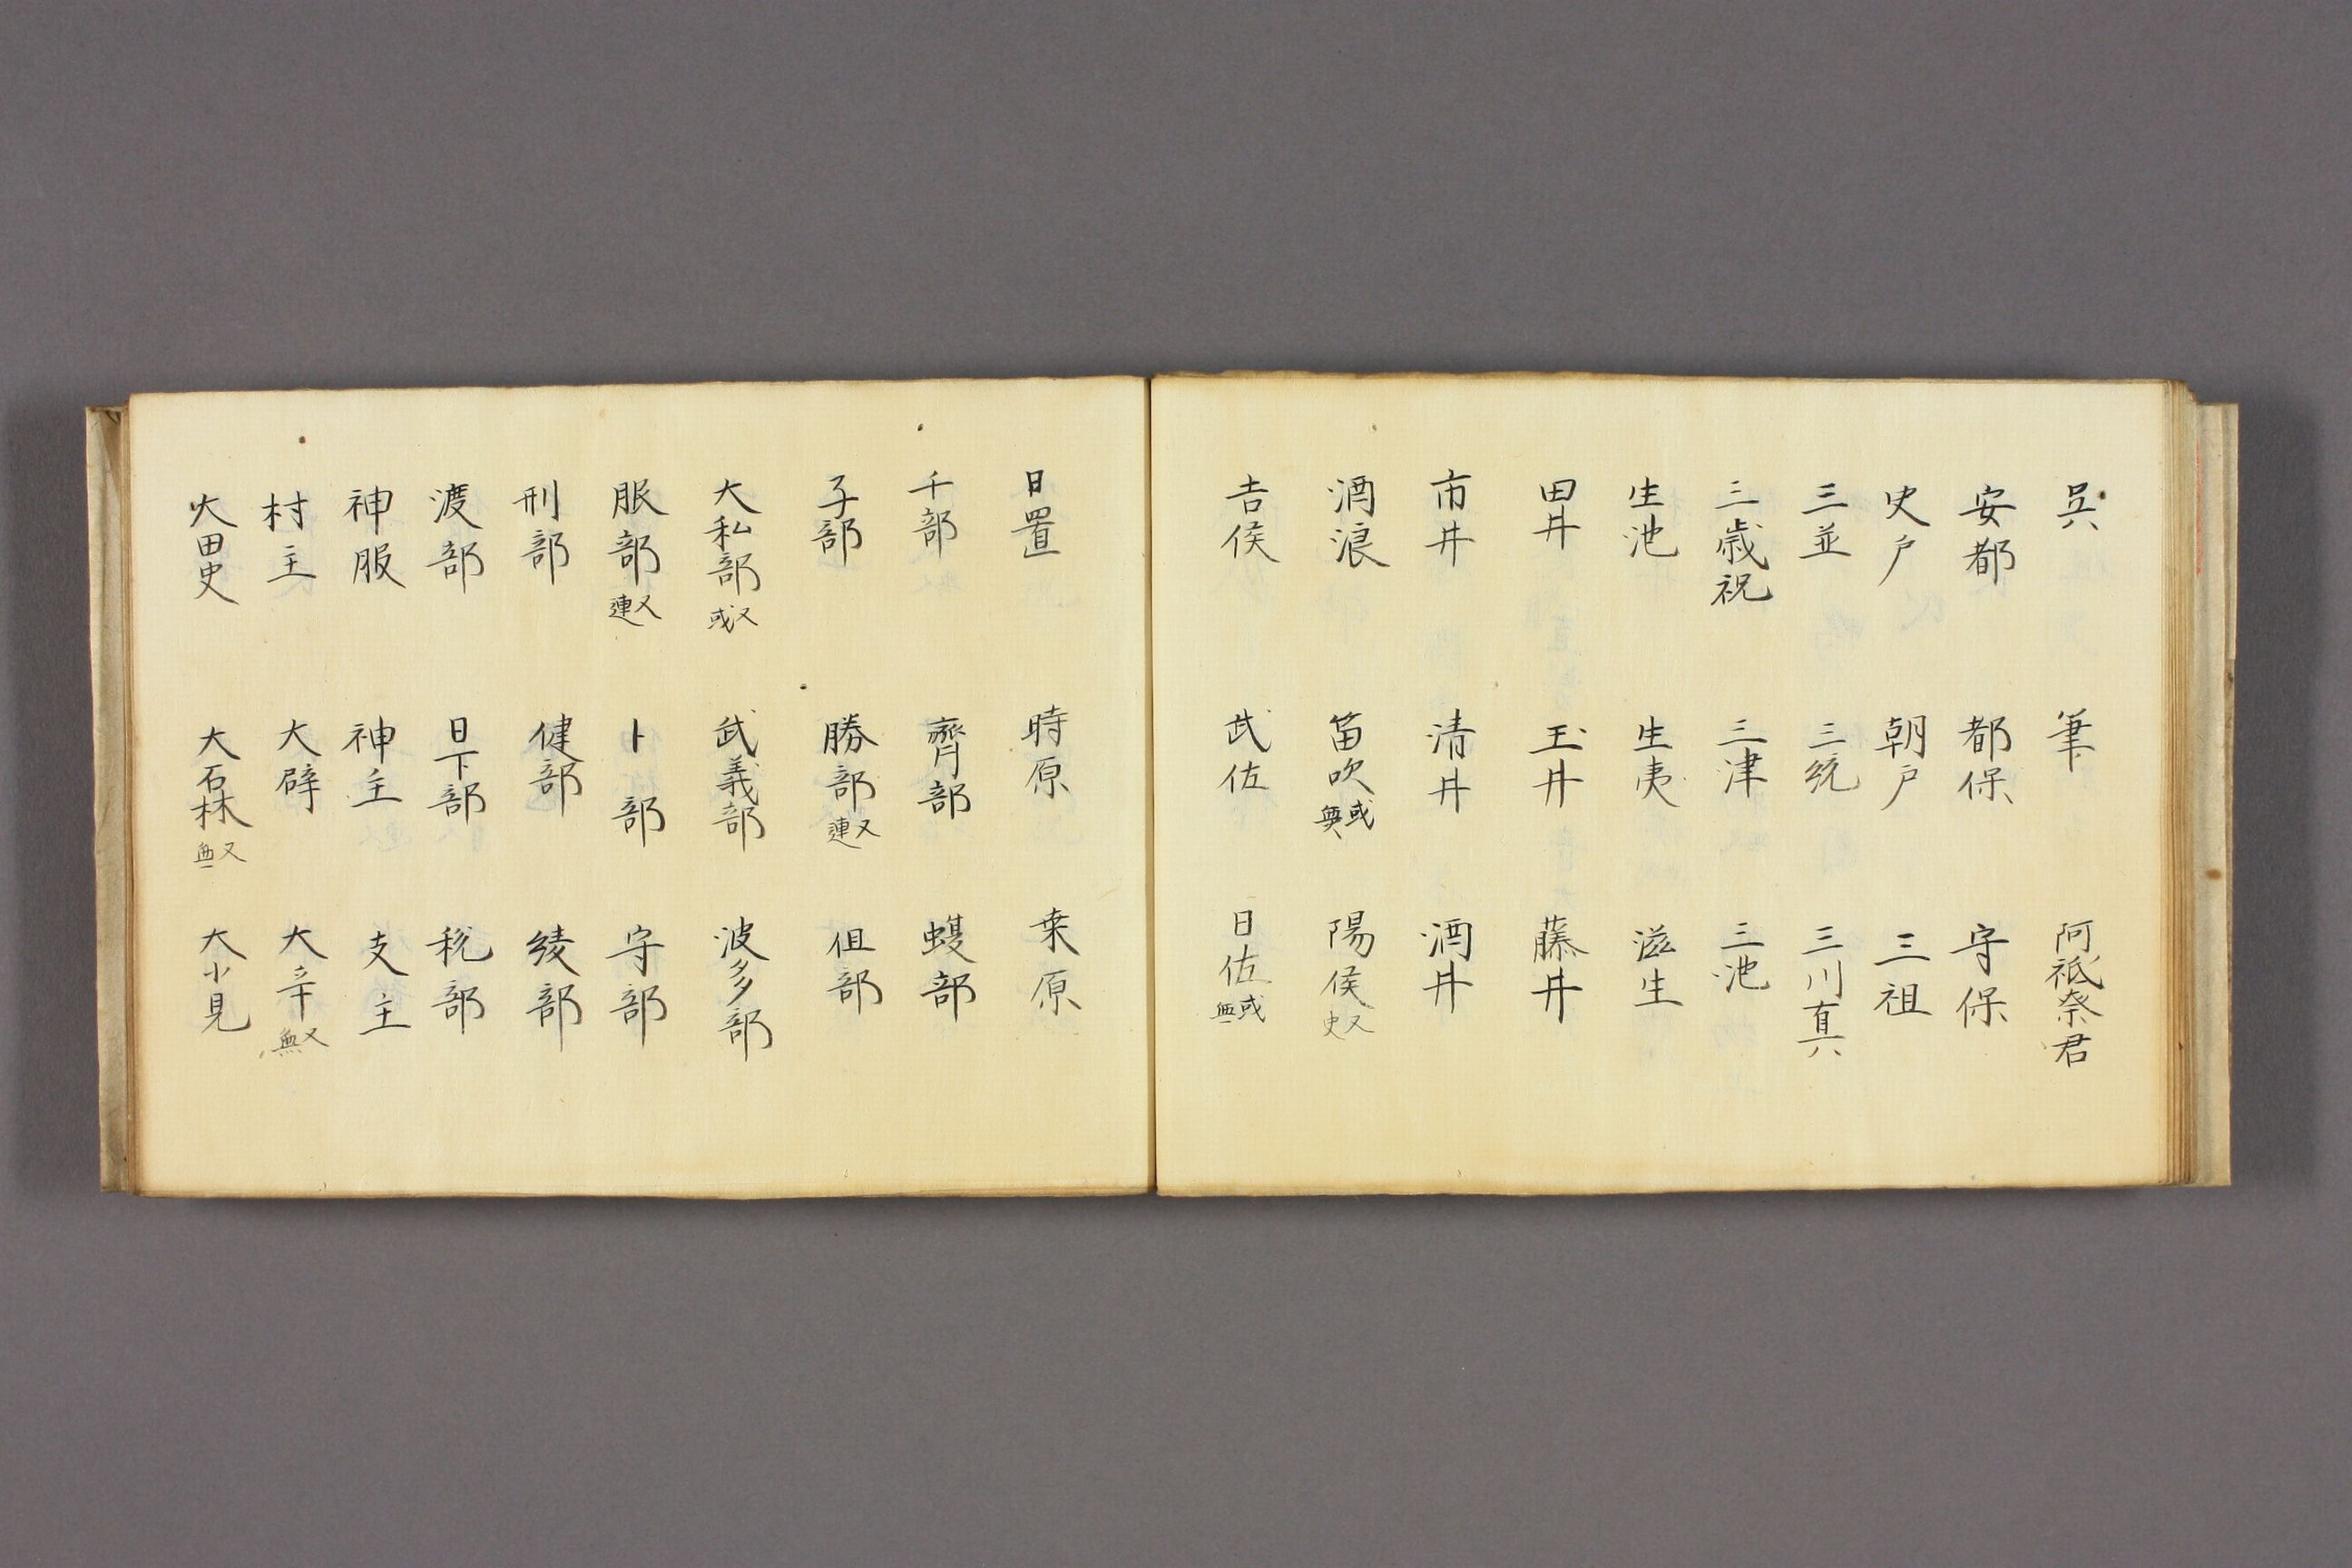 呉 筆 阿祇奈君
安都 都保 守保
史戸 朝戸 三祖
三並 三統 三川真
三歳祝 三津 三池
生池 生夷 滋生
田井 玉井 藤井
市井 清井 酒井
酒浪 笛吹或無 陽侯又史
吉侯 武佐 日佐或無
日置 時原 桒原
千部 齊部 蝮部
子部 勝部又連 但部
大私部又或 武義部 波多部
服部又連 卜部 守部
刑部 健部 綾部
渡部 日下部 税部
神服 神主 支主
村主 大辟 大辛又無
大田史 大石林又無 大小見